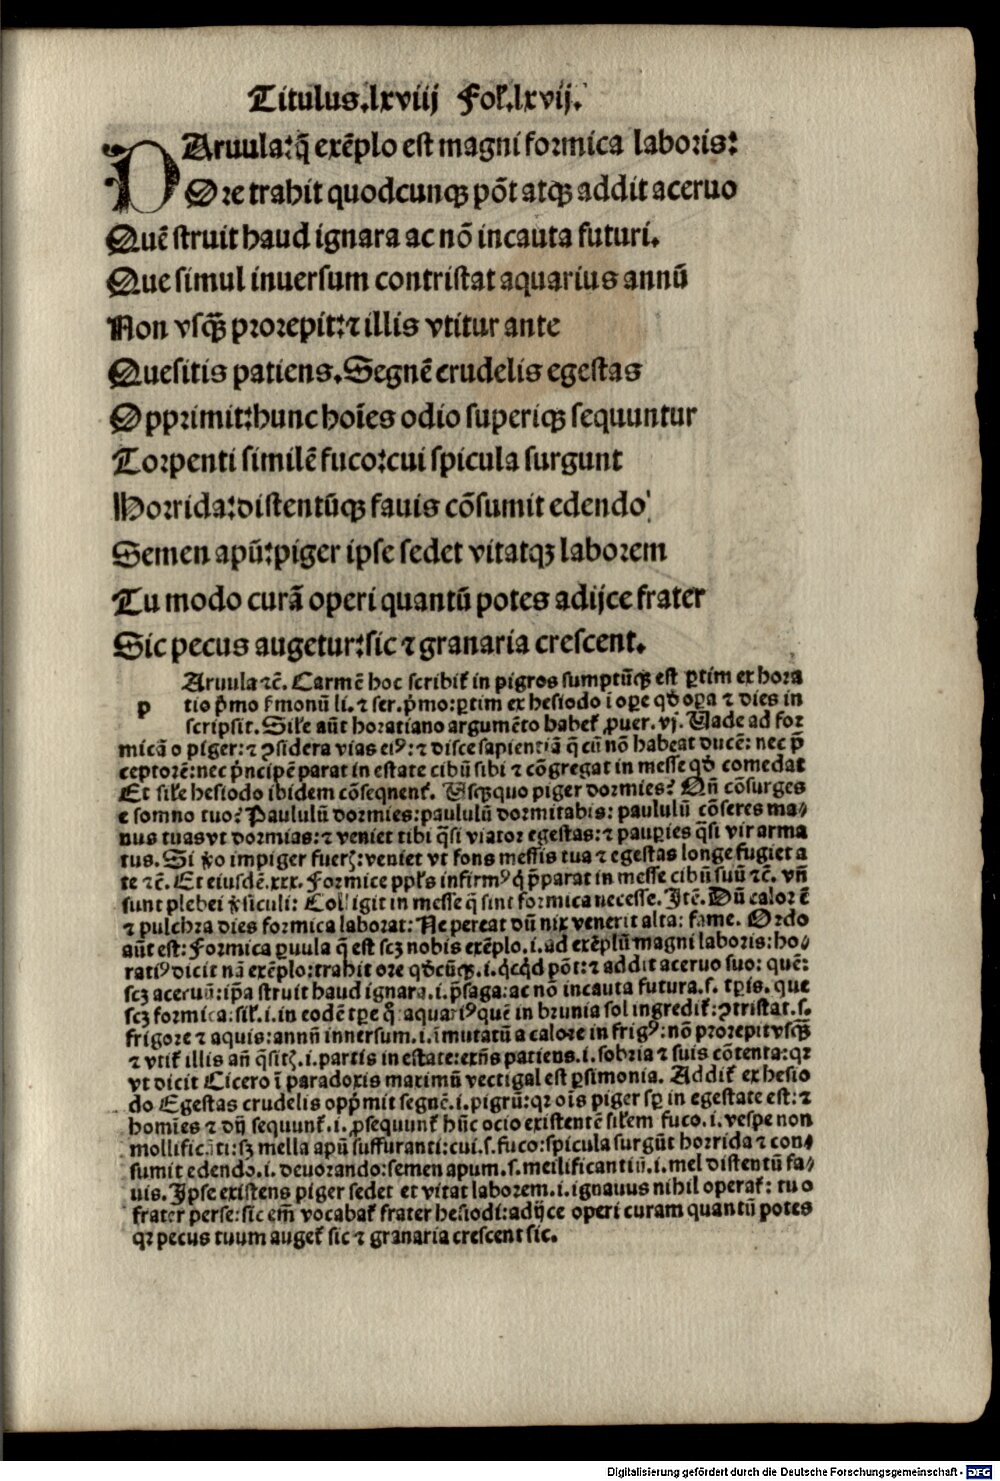 Titulus.lxviij Fol.lxvij.
PAruula:q̃ exẽplo est magni formica laboris:
Ore trahit quodcunqꝫ põt atqꝫ addit aceruo
Quẽ struit haud ignara ac nõ incauta futuri.
Que simul inuersum contristat aquarius annũ
Non vsqꝫ̃ prorepit:⁊ illis vtitur ante
Quesitis patiens.Segnẽ crudelis egestas
Opprimit:hunc hoĩes odio superiqꝫ sequuntur
Torpenti similẽ fuco:cui spicula surgunt
Horrida:distentũqꝫ fauis cõsumit edendo
Semen apũ:piger ipse sedet vitatqꝫ laborem
Tu modo curã operi quantũ potes adijce frater
Sic pecus augetur:sic ⁊ granaria crescent.
Aruula ⁊c̃. Carmẽ hoc scribit̃ in pigros sumptũqꝫ est ꝑtim ex hora
p tio p̃mo s̃monũ li. ⁊ ser. p̃mo:ꝑtim ex hesiodo ĩ oꝑe qd̃ oꝑa ⁊ dies in
scripsit. Sil̃e aũt horatiano argumẽto habet̃ ꝓuer. vj. Uade ad for
micã o piger: ⁊ ꝯsidera vias eiꝰ: ⁊ disce sapientiã q̃ cũ nõ habeat ducẽ: nec p̃
ceptorẽ:nec p̃ncipẽ parat in estate cibũ sibi ⁊ cõgregat in messe qd̃ comedat
Et sil̃e hesiodo ibidem cõsequent̃. Usqꝫquo piger dormies? Qñ cõsurges
e somno tuo? Paululũ dormies:paululũ dormitabis: paululũ cõseres ma⸗
nus tuas vt dormias: ⁊ veniet tibi q̃si viator egestas: ⁊ pauꝑies q̃si vir arma
tus. Si ṽo impiger fuerꝭ:veniet vt fons messis tua ⁊ egestas longe fugiet a
te ⁊c̃. Et eiusdẽ.xxx. Formice ppl̃s infirmꝰ q̃ p̃parat in messe cibũ suũ ⁊c̃. vñ
sunt plebei ṽsiculi: Colligit in messe q̃ sint formica necesse. Itẽ. Dũ calor ẽ
⁊ pulchra dies formica laborat: Ne pereat dũ nix venerit alta: fame. Ordo
aũt est: Formica ꝑuula q̃ est scꝫ nobis exẽplo.i.ad exẽplũ magni laboris:ho⸗
ratiꝰ dicit nã exẽplo:trahit ore qd̃cũqꝫ.i.q̃cq̃d põt:⁊ addit aceruo suo: quẽ:
scꝫ aceruũ:ip̃a struit haud ignara.i.p̃saga:ac nõ incauta futura.s. tꝑis. que
scꝫ formica:sil̃.i.in eodẽ tꝑe q̃ aquariꝰ quẽ in brunia sol ingredit̃:ꝯtristat.s.
frigore ⁊ aquis:annũ inuersum.i.ĩmutatũ a calore in frigꝰ:nõ prorepit vsqꝫ̃
⁊ vtit̃ illis añ q̃sitꝭ.i.partis in estate:exñs patiens.i.sobria ⁊ suis cõtenta:qꝛ
vt dicit Cicero ĩ paradoxis maximũ vectigal est ꝑsimonia. Addit̃ ex hesio
do Egestas crudelis opp̃mit segnẽ.i.pigrũ:qꝛ oĩs piger sꝑ in egestate est:⁊
homĩes ⁊ dij sequunt̃.i.ꝓsequunt̃ hũc ocio existentẽ sil̃em fuco.i.vespe non
mollificãti:sꝫ mella apũ suffuranti:cui.s.fuco:spicula surgũt horrida ⁊ con⸗
sumit edendo.i.deuorando:semen apum.s.mellificantiũ.i.mel distentũ fa⸗
uis. Ipse existens piger sedet et vitat laborem.i.ignauus nihil operat̃: tu o
frater perse:sic em̃ vocabat̃ frater hesiodi:adijce operi curam quantũ potes
qꝛ pecus tuum auget̃ sic ⁊ granaria crescent sic.
Digitalisierung gefördert durch die Deutsche Forschungsgemeinschaft - DFG